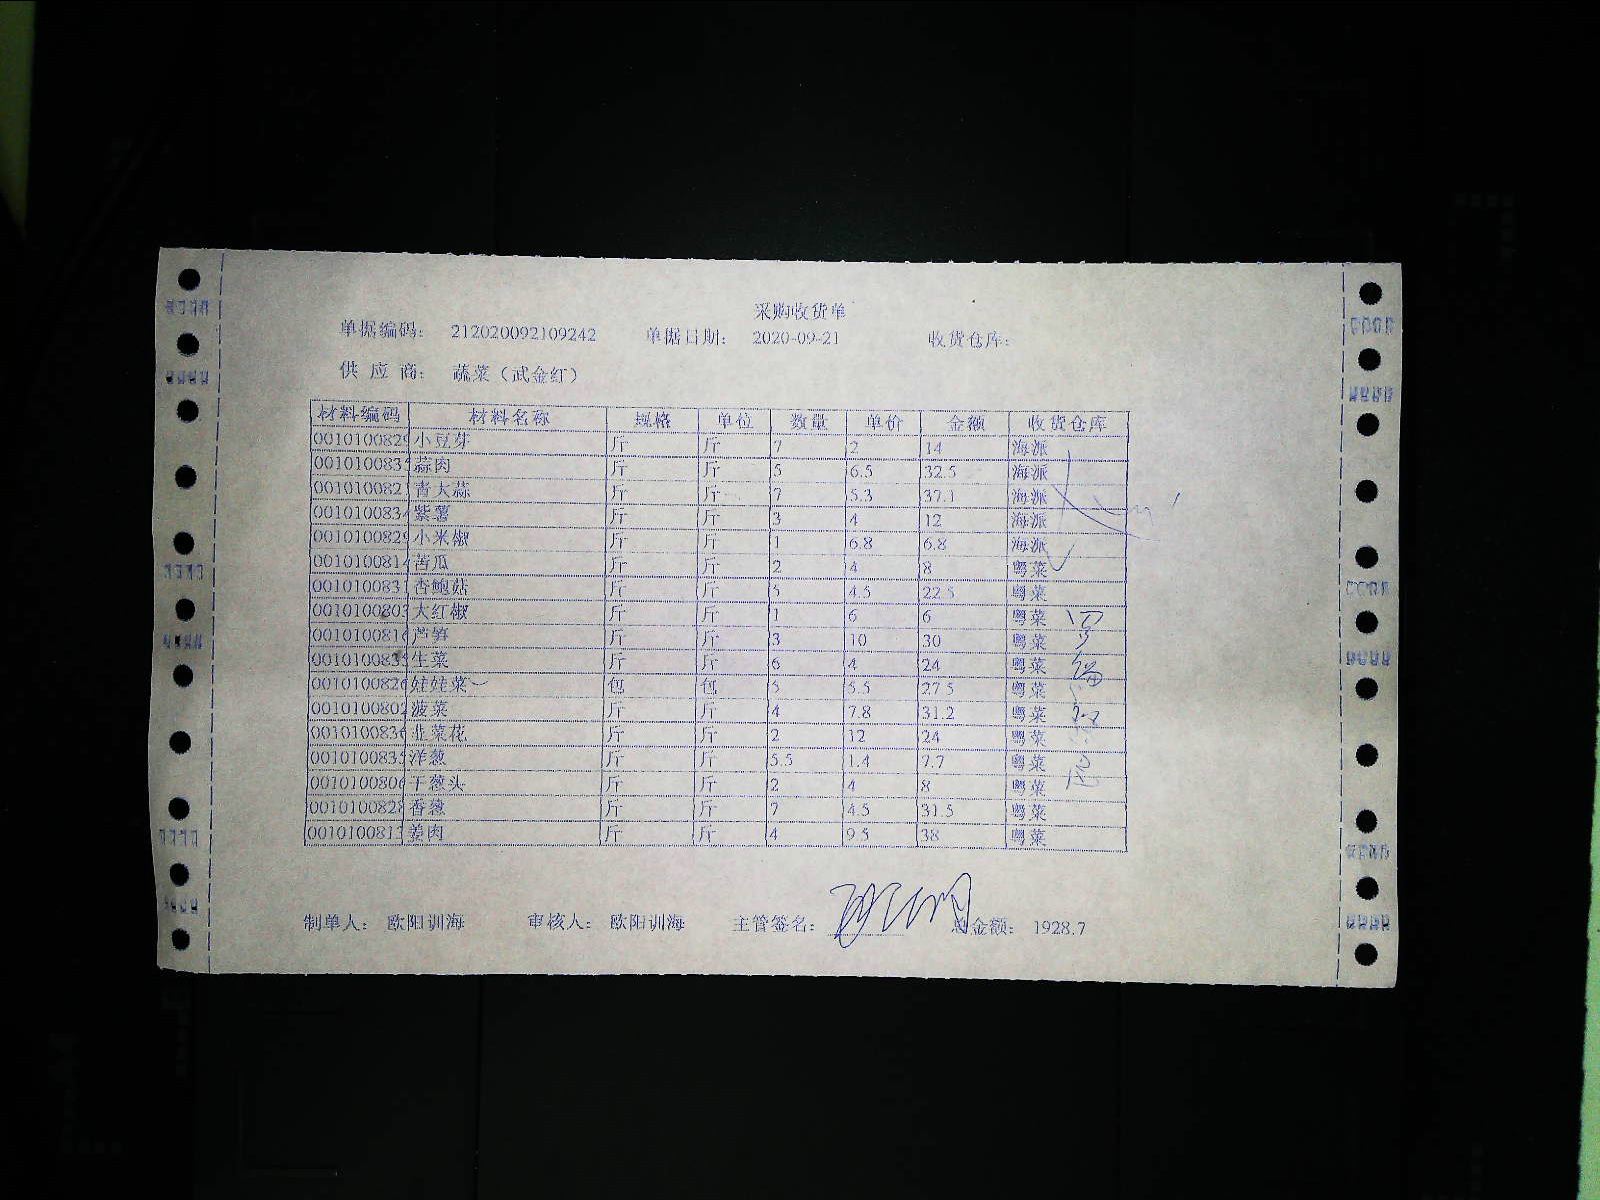 采购收货单
单据编码： 212020092109242 单据日期： 2020-09-21 收货仓库：
供 应 商： 蔬菜（武金红）
材料编码 材料名称 规格 单位 数量 单价 金额 收货仓库
0010100829 小豆芽 斤 斤 7 2 14 海派
001010083 蒜肉 斤 斤 5 6.5 32.5 海派
001010082 青大蒜 斤 斤 7 5.3 37.1 海派
001010083 紫薯 斤 斤 3 4 12 海派
0010100829 小米椒 斤 斤 1 6.8 6.8 海派
001010081 苦瓜 斤 斤 2 4 8 粤菜
001010083 杏鲍菇 斤 斤 5 4.5 22.5 粤菜
001010080 大红椒 斤 斤 1 6 6 粤菜
001010081 芦笋 斤 斤 3 10 30 粤菜
001010083 生菜 斤 斤 6 4 24 粤菜
001010082 娃娃菜 包 包 5 5.5 27.5 粤菜
001010080 菠菜 斤 斤 4 7.8 31.2 粤菜
001010083 韭菜花 斤 斤 2 12 24 粤菜
001010083 洋葱 斤 斤 5.5 1.4 7.7 粤菜
001010080 干葱头 斤 斤 2 4 8 粤菜
001010082 香葱 斤 斤 7 4.5 31.5 粤菜
001010081 姜肉 斤 斤 4 9.5 38 粤菜
制单人： 欧阳训海 审核人： 欧阳训海 主管签名： 总金额： 1928.7